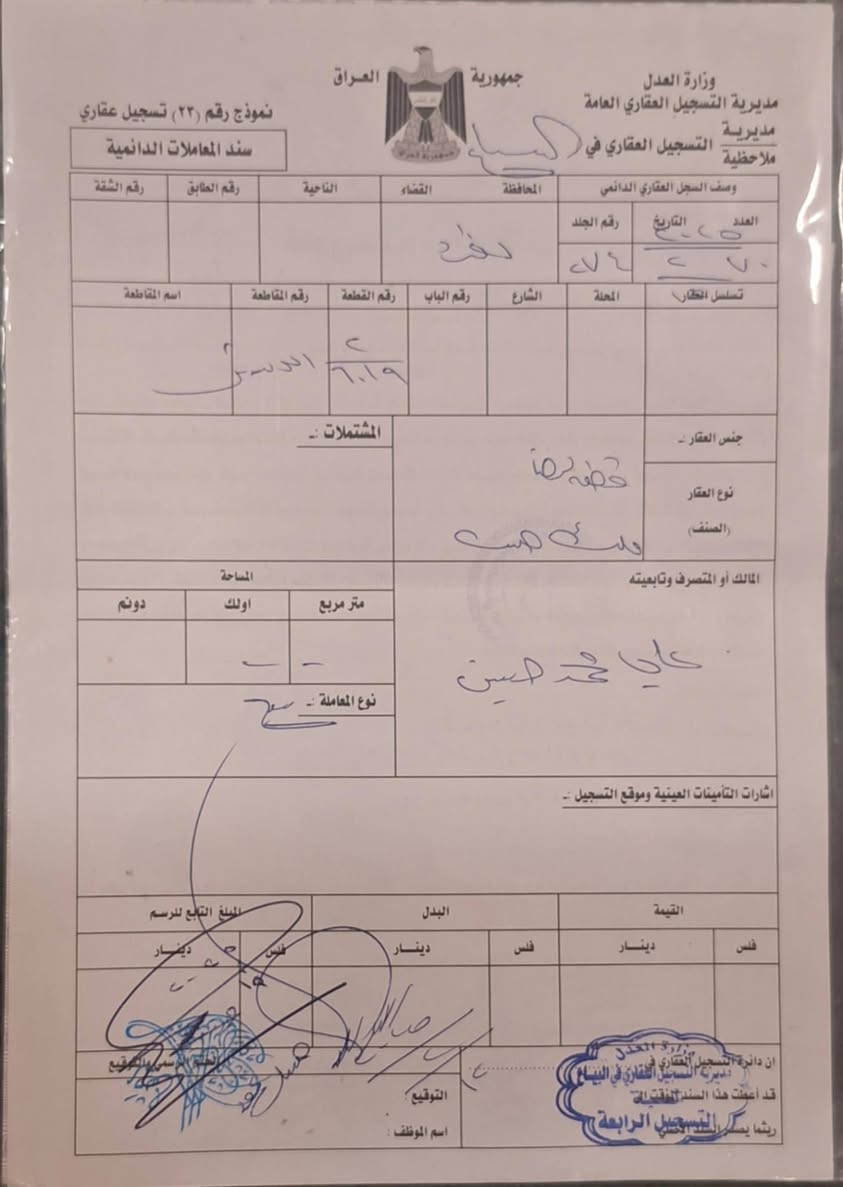 جمهورية العراق
وزارة العدل
مديرية التسجيل العقاري العامة
مديرية
ملاحظية
التسجيل العقاري في البياع
نموذج رقم (٢٣) تسجيل عقاري
سند المعاملات الدائمية
وصف السجل العقاري الدائمي
المحافظة
القضاء
الناحية
رقم الطابق
رقم الشقة
العدد
التاريخ
رقم الجلد
بغداد
٢٠٢٥
٧٠
٢
تسلسل العقار
المحلة
الشارع
رقم الباب
رقم القطعة
رقم المقاطعة
اسم المقاطعة
٢
٦٠١٩
جنس العقار :ـ
المشتملات :ـ
نوع العقار
(الصنف)
المالك أو المتصرف وتابعيته
المساحة
متر مربع
اولك
دونم
علي محمد حسين
نوع المعاملة :ـ
بيع
اشارات التأمينات العينية وموقع التسجيل :ـ
القيمة
البدل
المبلغ التابع للرسم
فلس
دينار
فلس
دينار
فلس
دينار
ان دائرة التسجيل العقاري في
قد أعطت هذا السند المؤقت الى
ريثما يصدر السند الأصلي
التوقيع :
اسم الموظف :
وزارة العدل
مديرية التسجيل العقاري في البياع
التسجيل الرابعة